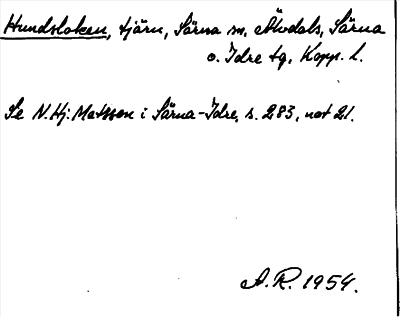 Hundsloken, tjärn, Särna sn, Älvdals, Särna
o. Idre tg, Kopp. l.
Se N. Hj. Matsson i Särna-Idre, s. 283, not 21.
A. R. 1954.